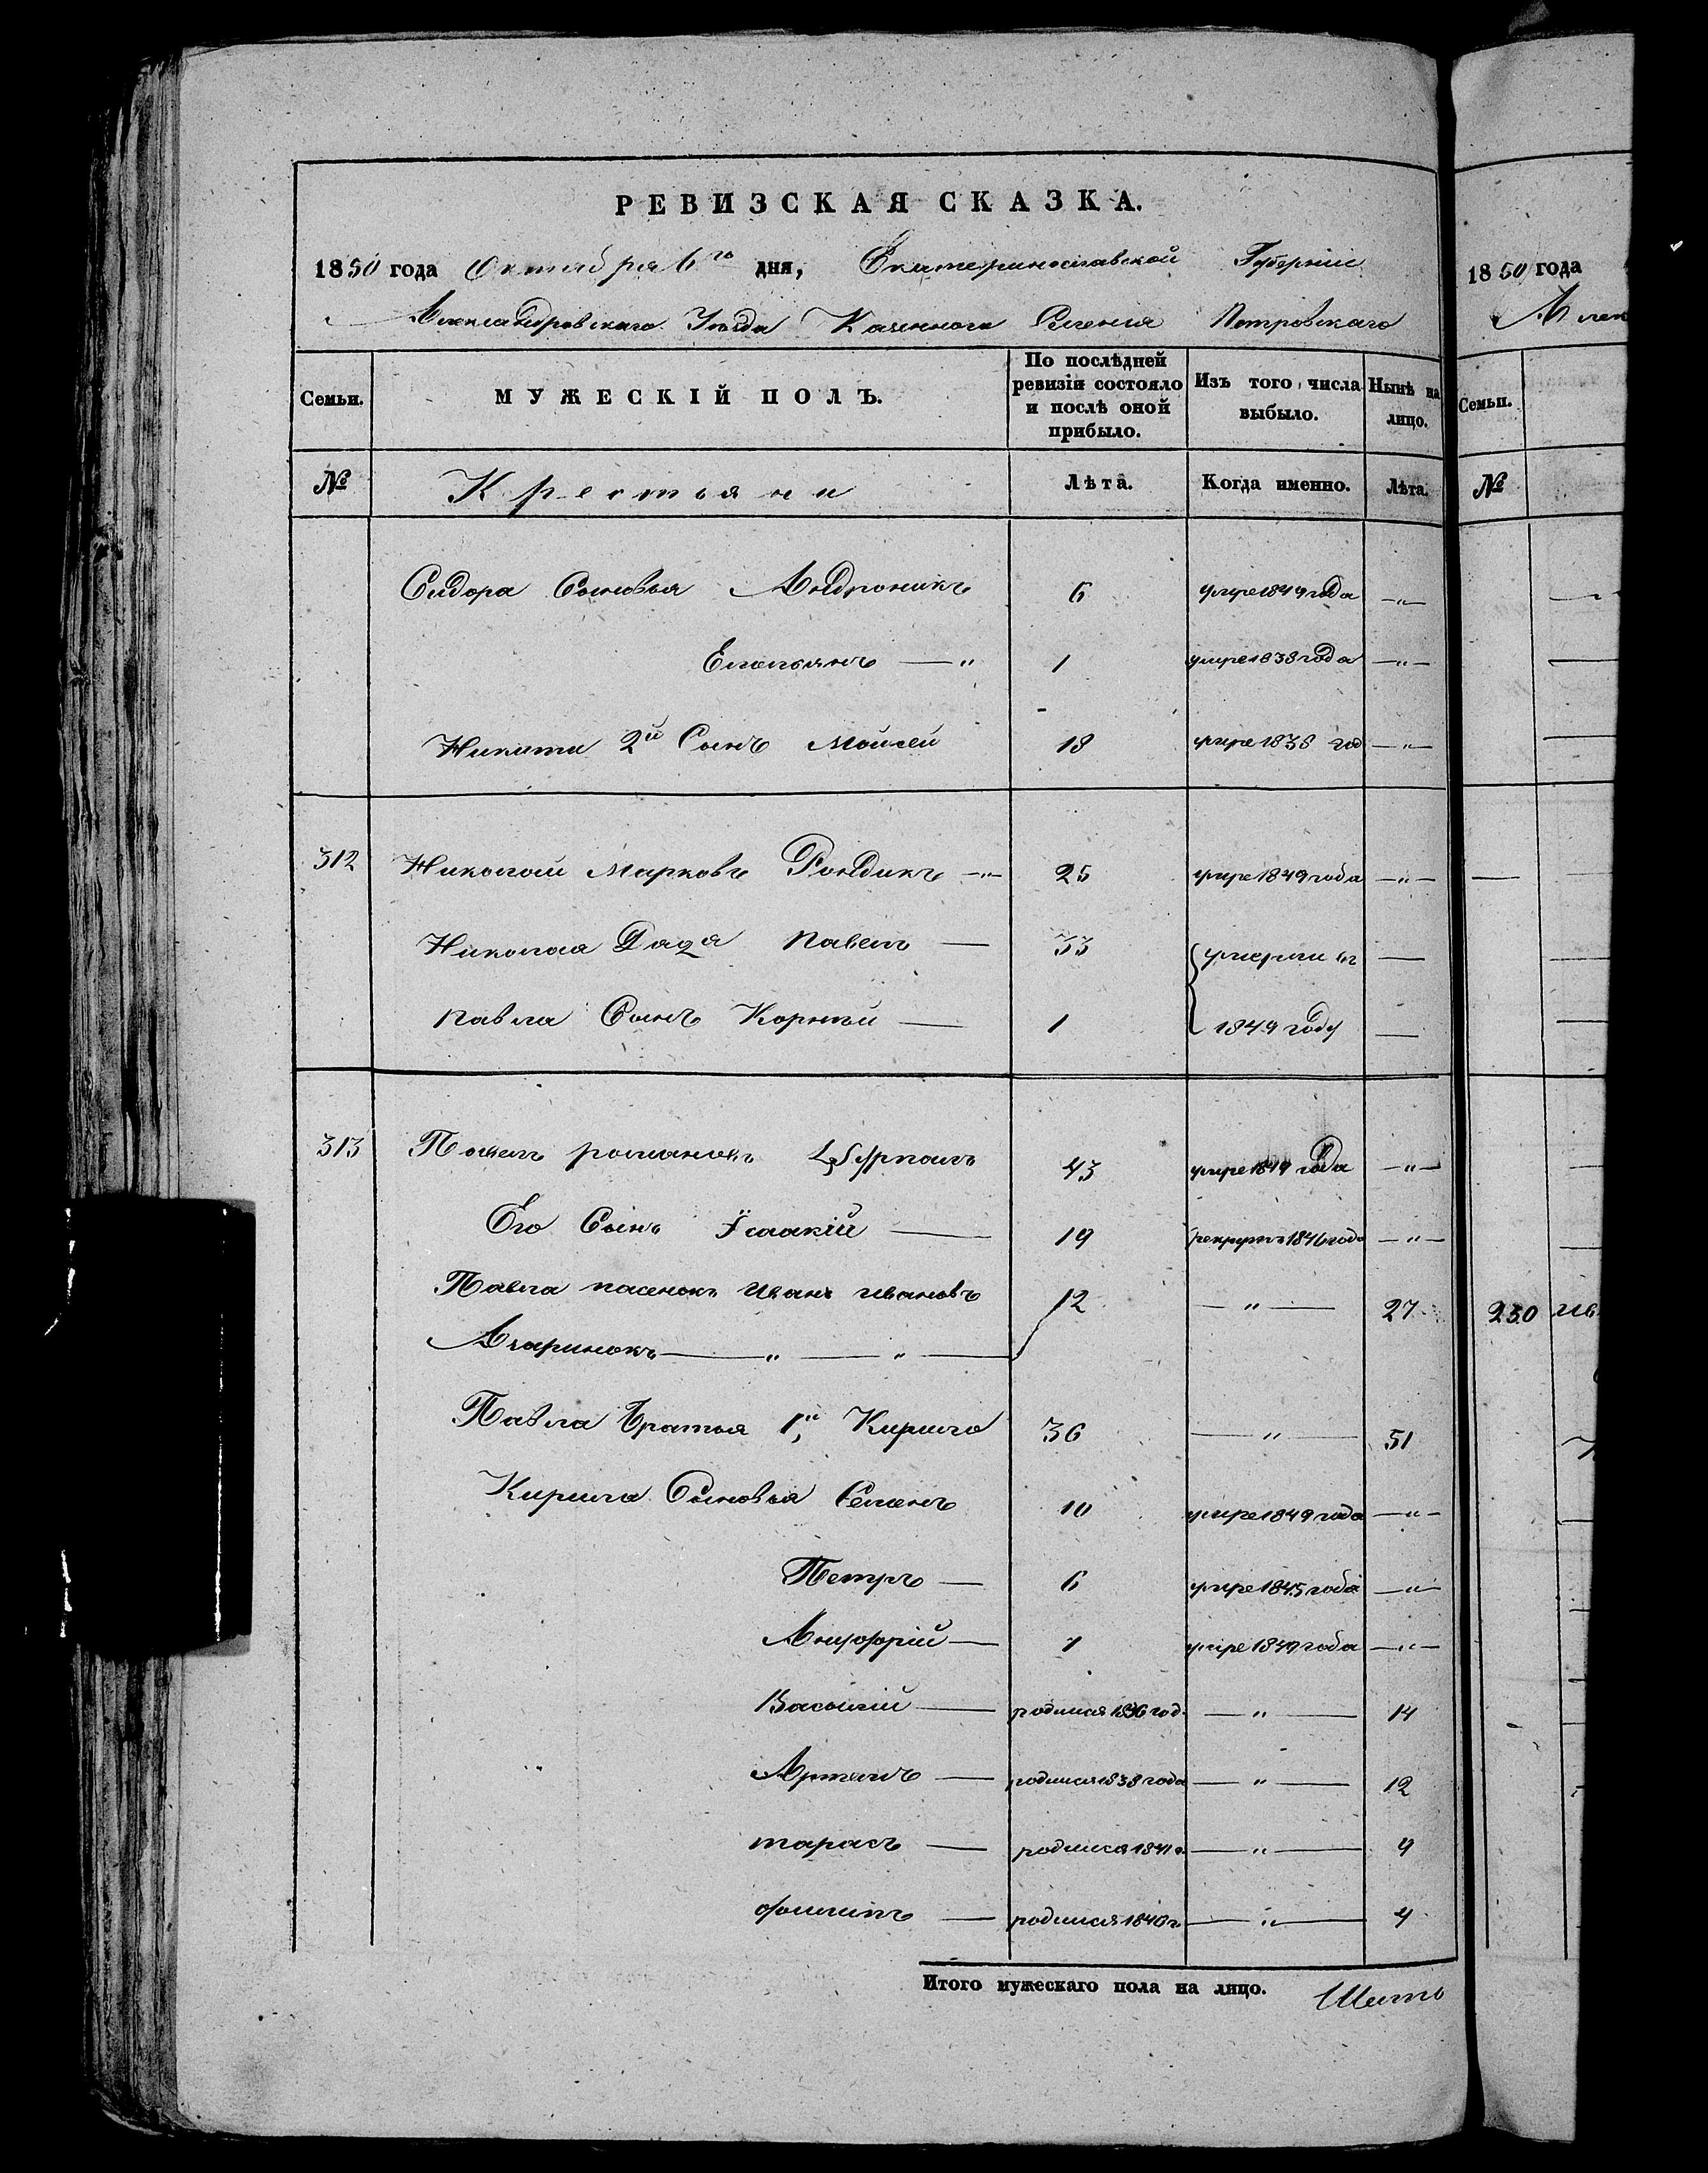 РЕВИЗСКАЯ СКАЗКА.
1850 года Октября 6го дня, Екатеринославской Губерніи
Александровскаго Уѣзда Казеннаго Селенія Петровскаго
Семьи.
МУЖЕСКІЙ ПОЛЪ.
По послѣдней ревизіи состояло и послѣ оной прибыло.
Изъ того числа выбыло.
Нынѣ на лицо.
№ Крестьяни Лѣта. Когда именно. Лѣта.
Сидора Сыновья Андроникъ 6 умре 1849 года —„—
Емельянъ —„ 1 умре 1838 года —„—
Никита 2й Сынъ Мойсей 18 умре 1838 год —„—
312 Николай Марковъ —„— 25 умре 1849 года —„—
Николая Дядя Павелъ — 33 умерли въ —
Павла Сынъ Корнѣй — 1 1849 году —
313 Павелъ романовъ 43 умре 1849 года —„—
Его Сынъ Ісаакій — 19 рекрутъ 1846 года —„—
Павла пасенокъ Иванъ Ивановъ 12 —„— 27
—„—„—
Павла братья 1й Кирило 36 —„— 51
Кирила Сыновья Семенъ 10 умре 1849 года —„—
Петръ — 6 умре 1845 года —„—
Ануфрій — 1 умре 1849 года —„—
Василій — родился 1836 год. —„— 14
Артемъ — родился 1838 года —„— 12
тарасъ — родился 1841 г. —„— 9
филипъ — родился 1846 г. —„— 4
Итого мужескаго пола на лицо. Шесть
1850 года
Алек
Семьи.
№
230 Ив